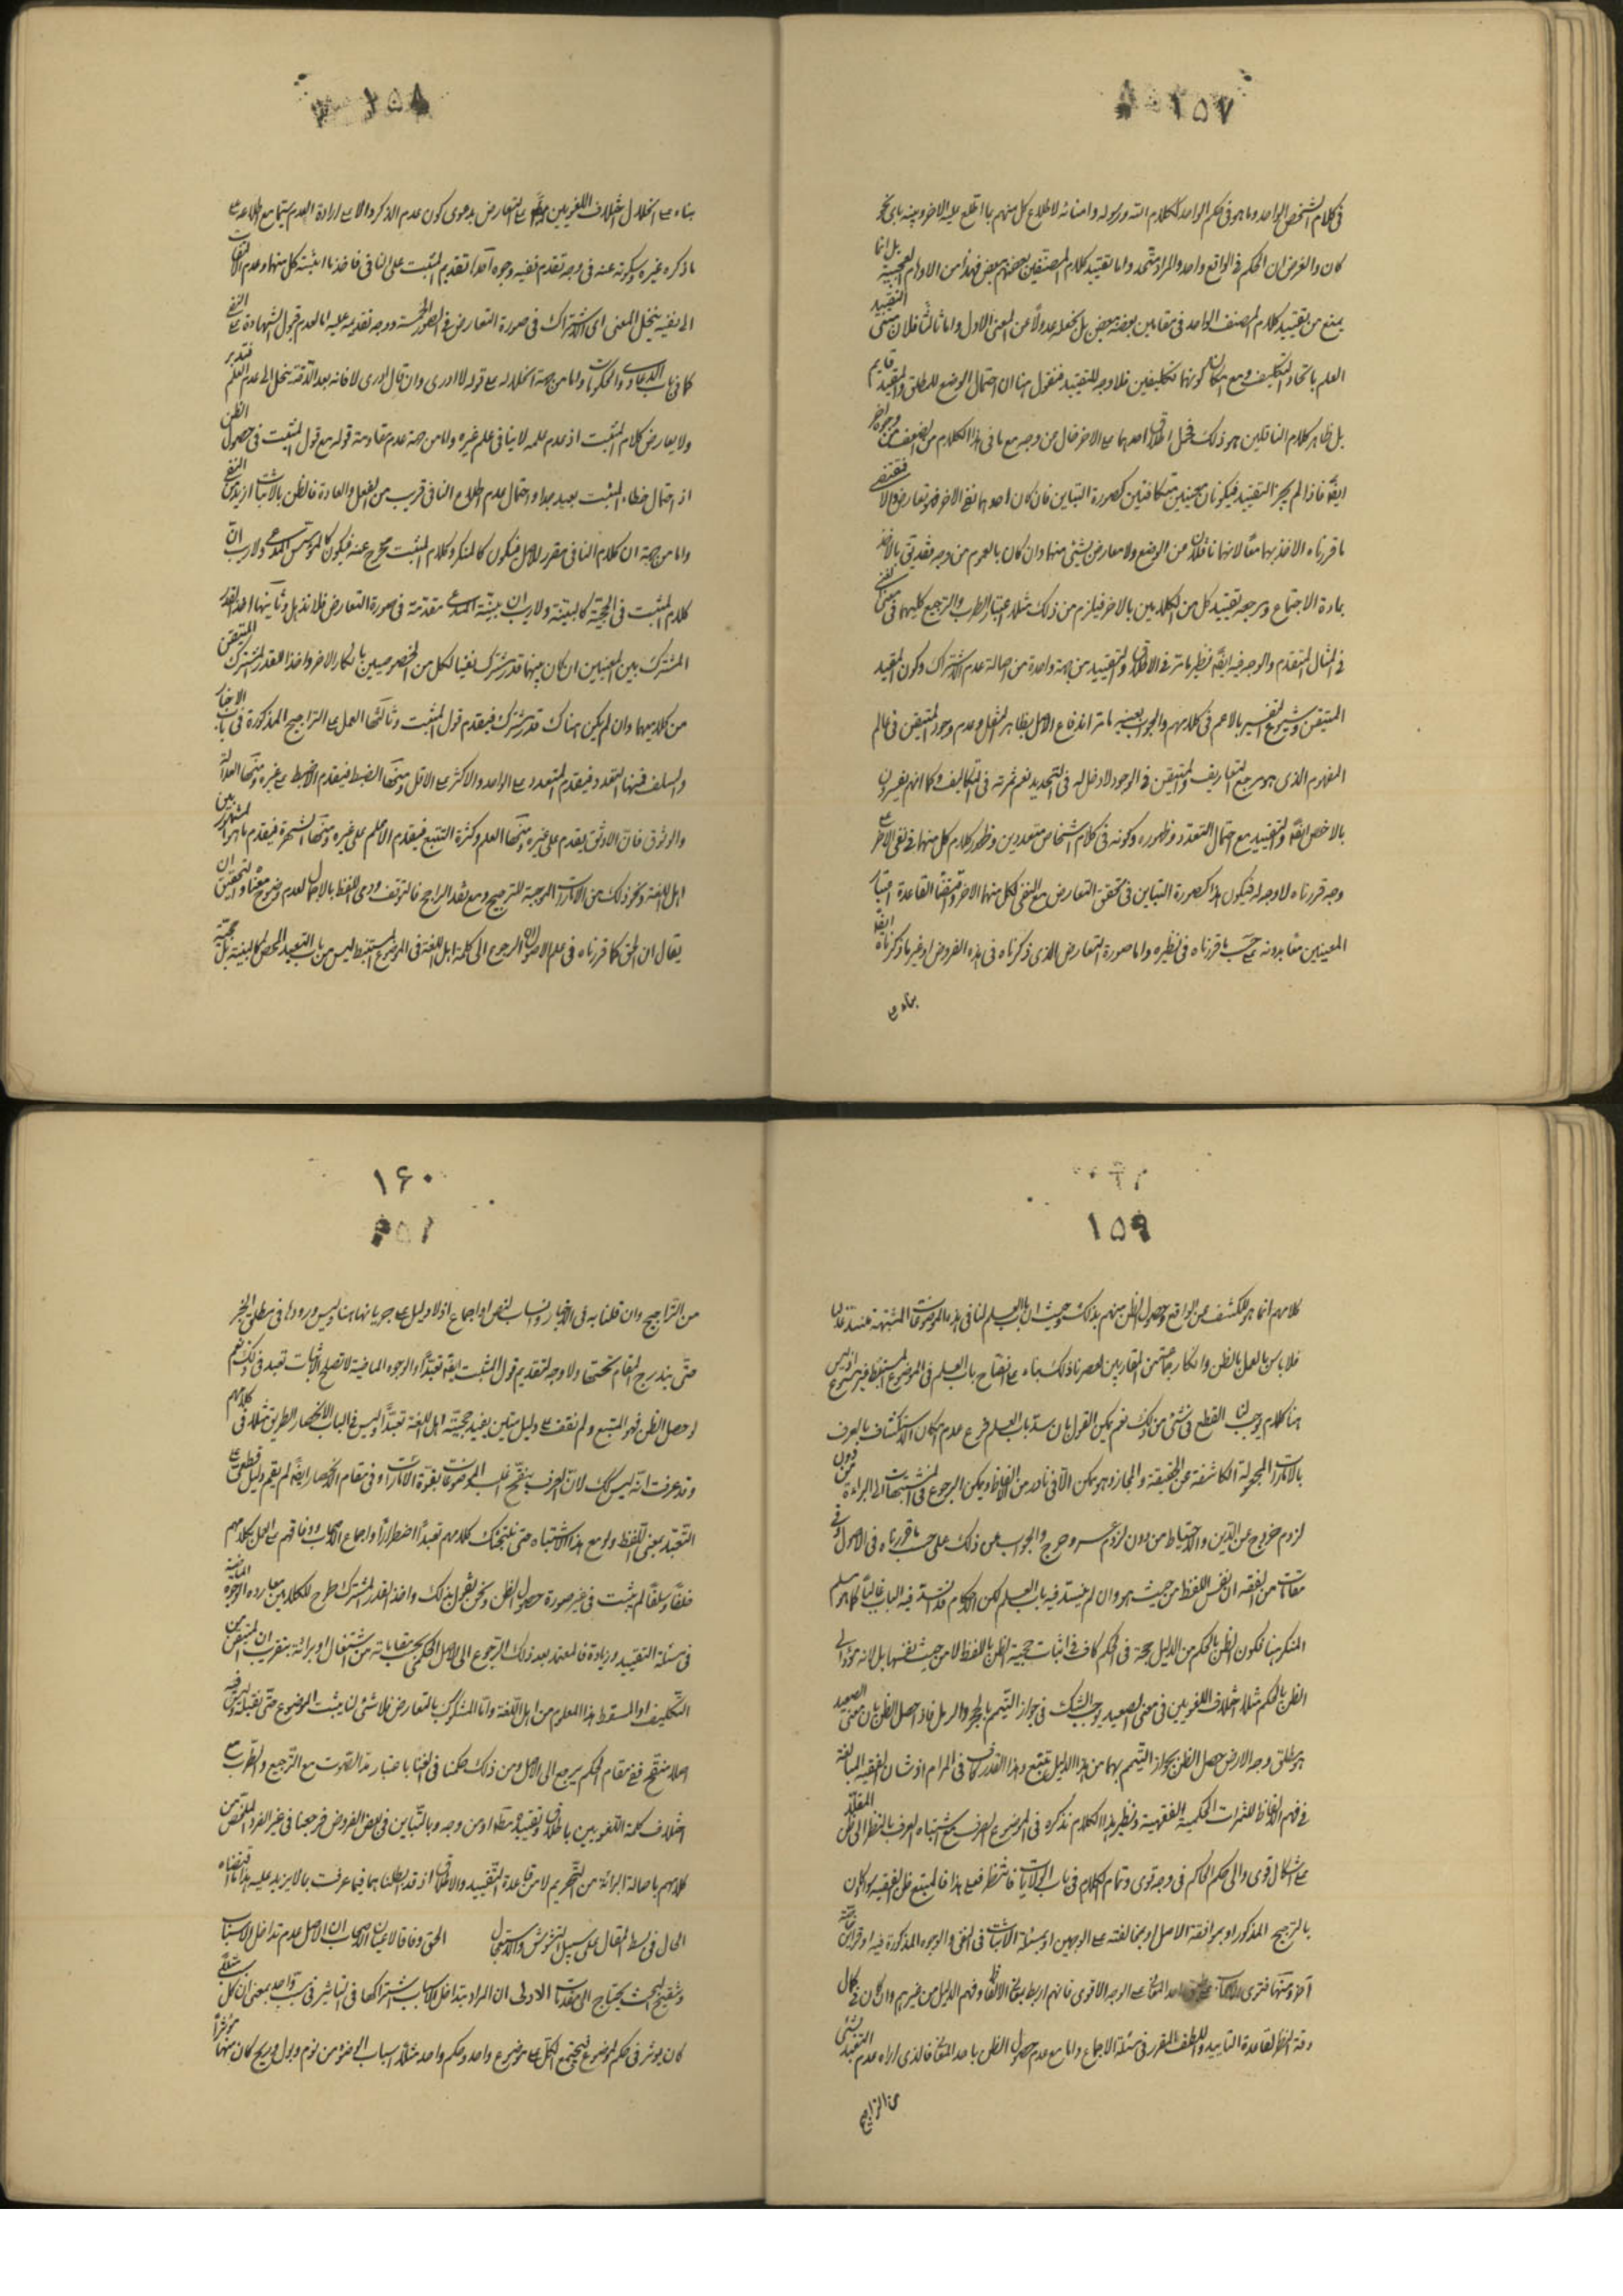 ١٥٧
فى كلام الشخص الواحد وما هو فى حكم الواحد ككلام الله ورسوله وامنائه لاطلاع كل منهم بما اطلع عليه الاخر وبينه باى نحو
كان والغرض ان الحكم فى الواقع واحد والمراد متحد واما تقييد كلام المصنفين بعضهم ببعض فهذا من الاوهام العجيبة بل انما
يمنع من تقييد كلام المصنف الواحد فى مقامين بعضه ببعض بل نجعله عدولاً عن المعنى الاول واما ثالثاً فلان التقييد
العلم باتحاد التكليف ومع امكان كونهما تكليفين فلا وجه للتقييد فنقول هنا ان احتمال الوضع للمطلق والمقيد قايم
بل ظاهر كلام الناقلين هو ذلك فحمل اطلاق احدهما على الاخر خال من وجه مع ما فى هذا الكلام من الضعف من وجوه اخر
ايضا فاذا لم يجز التقييد فيكونان متكافئين كصورة التباين فان كان احدهما نفى الاخر فهو تعارض والا فمقتضى
ما قررناه الاخذ بهما معاً لانهما ناقلان عن الوضع ولا معارض لشئ منهما وان كان بالعموم من وجه فقد يق بالاخذ
بمادة الاجتماع ومرجعه تقييد كل من الكلامين بالاخر فيلزم من ذلك مثلا اعتبار الطرب والترجيع كليهما فى معنى
فى المثال المتقدم والوجه فيه ايضا نظير ما مر فى الاطلاق والتقييد من جهة واحدة من اصالة عدم الاشتراك وكون المقيد
المتيقن وشيوع التفسير بالاعم فى كلامهم والجواب بعينه ما مر اندفاع الاصل بظاهر النقل وعدم وجود المتيقن فى عالم
المفهوم الذى هو مرجع التعاريف والمتيقن فى الوجود لا دخل له فى التحديد نعم ثمرته فى التكاليف وكما انهم يفسرون
بالاخص ايضا والتقييد مع احتمال التعدد وظهوره وكونه فى كلام اشخاص متعددين وظهور كلام كل منهما فى نفى الاخر على
وجه قررناه لا وجه له فيكون هذا كصورة التباين فى تحقق التعارض مع النفى لكل منهما الاخر ومقتضى القاعدة اعتبار
المعنيين معا بدونه على حسب ما قررناه فى نظيره واما صورة التعارض الذى ذكرناه فى هذه الفروض او غير ما ذكرناه ايضا
بناء على
١٥٨
بناء على انحلال اختلاف اللغويين الى التعارض بدعوى كون عدم الذكر دالا على ارادة العدم سيما مع اطلاعه على
ما ذكره غيره وسكوته عنه فى وجه تقدم نفيه وجوه احدها تقديم المثبت على النافى فاخذ ما اثبته كل منهما وعدم الالتفات
الى نفيه فيتخيل المعنى اى الاشتراك فى صورة التعارض فى الصور الخمسة ووجه تقديمه عليه اما لعدم قبول الشهادة على النفى
كما فى باب الدعاوى والحكومات واما من جهة انحلاله على قوله لا ادرى وان قال ادرى لا فانه بعد الدقة ينحل الى عدم العلم فتدبر
ولا يعارض كلام المثبت اذ عدم علمه لا ينافى علم غيره واما من جهة عدم مقاومة قوله مع قول المثبت فى حصول الظن
اذ احتمال خطاء المثبت بعيد جدا واحتمال عدم اطلاع النافى قريب من الفعل والعادة فالظن بالاثبات ازيد من النفى
واما من جهة ان كلام النافى مقرر للاصل فيكون كالمنكر وكلام المثبت مخرج عنه فيكون كالمدعى ولا ريب ان
كلام المثبت فى الحجية كالبينة ولا ريب ان بينة المدعى مقدمة فى صورة التعارض فلا تذهل وثانيها اخذ القدر
المشترك بين المعنيين ان كان بينهما قدر مشترك نفيا لكل من الخصوصيتين بانكار الاخر واخذا للقدر المشترك المتيقن
من كلاميهما وان لم يكن هناك قدر مشترك فيقدم قول المثبت وثالثها العمل على التراجيح المذكورة فى باب الاخبار
والسلف فمنها التعدد فيقدم المتعدد على الواحد والاكثر على الاقل ومنها الضبط فيقدم الاضبط على غيره ومنها العدالة
والوثوق فان الاوثق يقدم على غيره ومنها العلم وكثرة التتبع فيقدم الاعلم على غيره ومنها الشهرة فيقدم ما هو المشهور بين
اهل اللغة ونحو ذلك من الامارات الموجبة للترجيح ومع فقد المرجح فالتوقف ورمى اللفظ بالاجمال لعدم وضوح معناه والتحقيق ان
يقال ان الحق كما قررناه فى علم الاصول ان الرجوع الى كلمة اهل اللغة فى الموضوع المستنبط ليس من باب التعبد المحض كالبينة بل حجية
١٥٩
كلامهم انما هو للكشف عن الواقع وحصول الظن منهم بذلك وحيث ان باب العلم لنا فى هذه الموضوعات المشتبهة منسد
فلا باس بالعمل بالظن وانكار جماعة من المقاربين لعصرنا ذلك بناء على انفتاح باب العلم فى الموضوع المستنبط غير مسموع اذ ليس
هنا كلام يوجب لنا القطع فى شئ من ذلك نعم يمكن القول بان سد باب العلم فرع عدم امكان الاستكشاف بالعرف
بالامارات المجعولة الكاشفة عن الحقيقة والمجاز وهو ممكن الا فى نادر من الالفاظ ويمكن الرجوع فى المشتبهات الى البراءة من دون
لزوم خروج عن الدين والاحتياط من دون لزوم عسر وحرج والجواب عن ذلك على حسب ما قررناه فى الاصول وفى
مقامات من الفقه ان نفس اللفظ من حيث هو وان لم ينسد فيه باب العلم لكن الاحكام قد انسد فيه الباب غالبا كما هو مسلم
المنكر هنا فكون الظن بالحكم من الدليل حجة فى الحكم كاف فى اثبات حجية الظن باللفظ لا من حيث نفسها بل لانه مؤد الى
الظن بالحكم مثلا اختلاف اللغويين فى معنى الصعيد يوجب الشك فى جواز التيمم بالحجر والرمل فاذا حصل الظن بان معنى الصعيد
هو مطلق وجه الارض حصل الظن بجواز التيمم بهما من هذا الدليل فيتبع وهذا القدر كاف فى المرام اذ شان الفقيه المبالغة
فى فهم الالفاظ للثمرات الحكمية الفقهية ونظير هذا الكلام نذكره فى الموضوع الصرف مع اشتباه العرف بالنظر الى ظن المقلد
على اشكال قوى والى حكم الحاكم فى وجه قوى وتمام الكلام فى باب الولايات فانتظر فعلى هذا فالمتبع ظن الفقيه سواء كان
بالترجيح المذكور او بموافقة الاصل او بمخالفته على الوجهين او بمسئلة الاثبات فى النفى والوجوه المذكورة فيه او قرائن
آخر ومنها فتوى الاصحاب على الوجه الاقوى فانهم اربط بمعانى الالفاظ وفهم الدليل من غيرهم وان كان فى كمال
دقة النظر لقاعدة التاييد واللطف المقرر فى مسئلة الاجماع واما مع عدم حصول الظن باحد المعانى فالذى اراه عدم التعبد بشئ
من التراجيح
١٦٠
من التراجيح وان قلنا به فى الاخبار والانساب لنص او اجماع اذ لا دليل على جريانها هنا وليس ورودها فى مطلق الخبر
حتى يندرج المقام تحتها ولا وجه لتقديم قول المثبت ايضا تعبدا والوجوه الماضية لا تصلح لاثبات تعبد فى ذلك نعم
لو حصل الظن فهو المتبع ولم نقف على دليل متين يفيد حجية اهل اللغة تعبدا وليس فى الباب الا انحصار الطريق مثلا فى كلامهم
وقد عرفت انه ليس كك لان العرف ينقح غالب الموضوعات بقوة الامارات وفى مقام الانحصار ايضا لم يقم دليل قطعى على
التعبد بمعنى اللفظ ولو مع هذا الاشتباه حتى نلتجئ لكلامهم تعبدا اضطرارا واجماع الاصحاب ووفاقهم على العمل بكلامهم
خلفا وسلفا لم يثبت فى غير صورة حصول الظن ونحن نقول بذلك واخذ القدر المشترك طرح للكلامين معا يرده الوجوه الماضية
فى مسئلة التقييد وزيادة فالمعتمد بعد ذلك الرجوع الى الاصل الحكمى بمقاماته من اشتغال او برائة بتقريب ان المتيقن من
التكليف او السقوط هذا المعلوم من اهل اللغة واما المشكوك بالتعارض فلا شئ لنا يثبت الموضوع حتى نقبله وليس فيه
اصلا منقح ففى مقام الحكم يرجع الى الاصل ومن ذلك حكمنا فى الغنا باعتبار مد الصوت مع الترجيع والطرب على
اختلاف كلمة اللغويين باطلاق وتقييد مطلقا او من وجه وبالتباين فى بعض الفروض فرجعنا فى غير الفرد الملخص من
كلامهم باصالة البرائة من التحريم لا من قاعدة التقييد والاطلاق اذ قد ابطلناهما فيما عرفت بما لا يزيد عليه هذا ما اقتضاه
الحال فى بسط المقال على سبيل التشويش والاستعجال الحق وفاقا لاعيان الاصحاب ان الاصل عدم تداخل الاسباب
وتنقيح البحث يحتاج الى مقدمات الاولى ان المراد بتداخل الاسباب اشتراكها فى التاثير فى سبب واحد بمعنى ان كل سبب
كان يوثر فى حكم لموضوع فيجتمع الكل على موضوع واحد وحكم واحد مثلا اسباب الوضوء من نوم وبول وريح كان منها موثرا